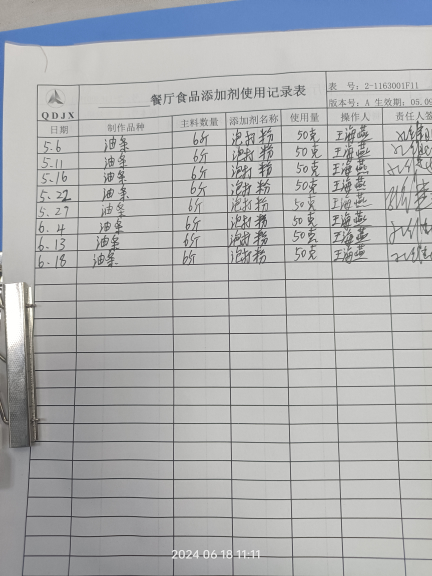 餐厅食品添加剂使用记录表
表 号：2-1163001F11
版本号：A 生效期：05.09
QDJX
日期 制作品种 主料数量 添加剂名称 使用量 操作人 责任人签
5.6 油条 6斤 泡打粉 50克 王海燕
5.11 油条 6斤 泡打粉 50克 王海燕
5.16 油条 6斤 泡打粉 50克 王海燕
5.22 油条 6斤 泡打粉 50克 王海燕
5.27 油条 6斤 泡打粉 50克 王海燕
6.4 油条 6斤 泡打粉 50克 王海燕
6.13 油条 6斤 泡打粉 50克 王海燕
6.18 油条 6斤 泡打粉 50克 王海燕
2024 06 18 11:11